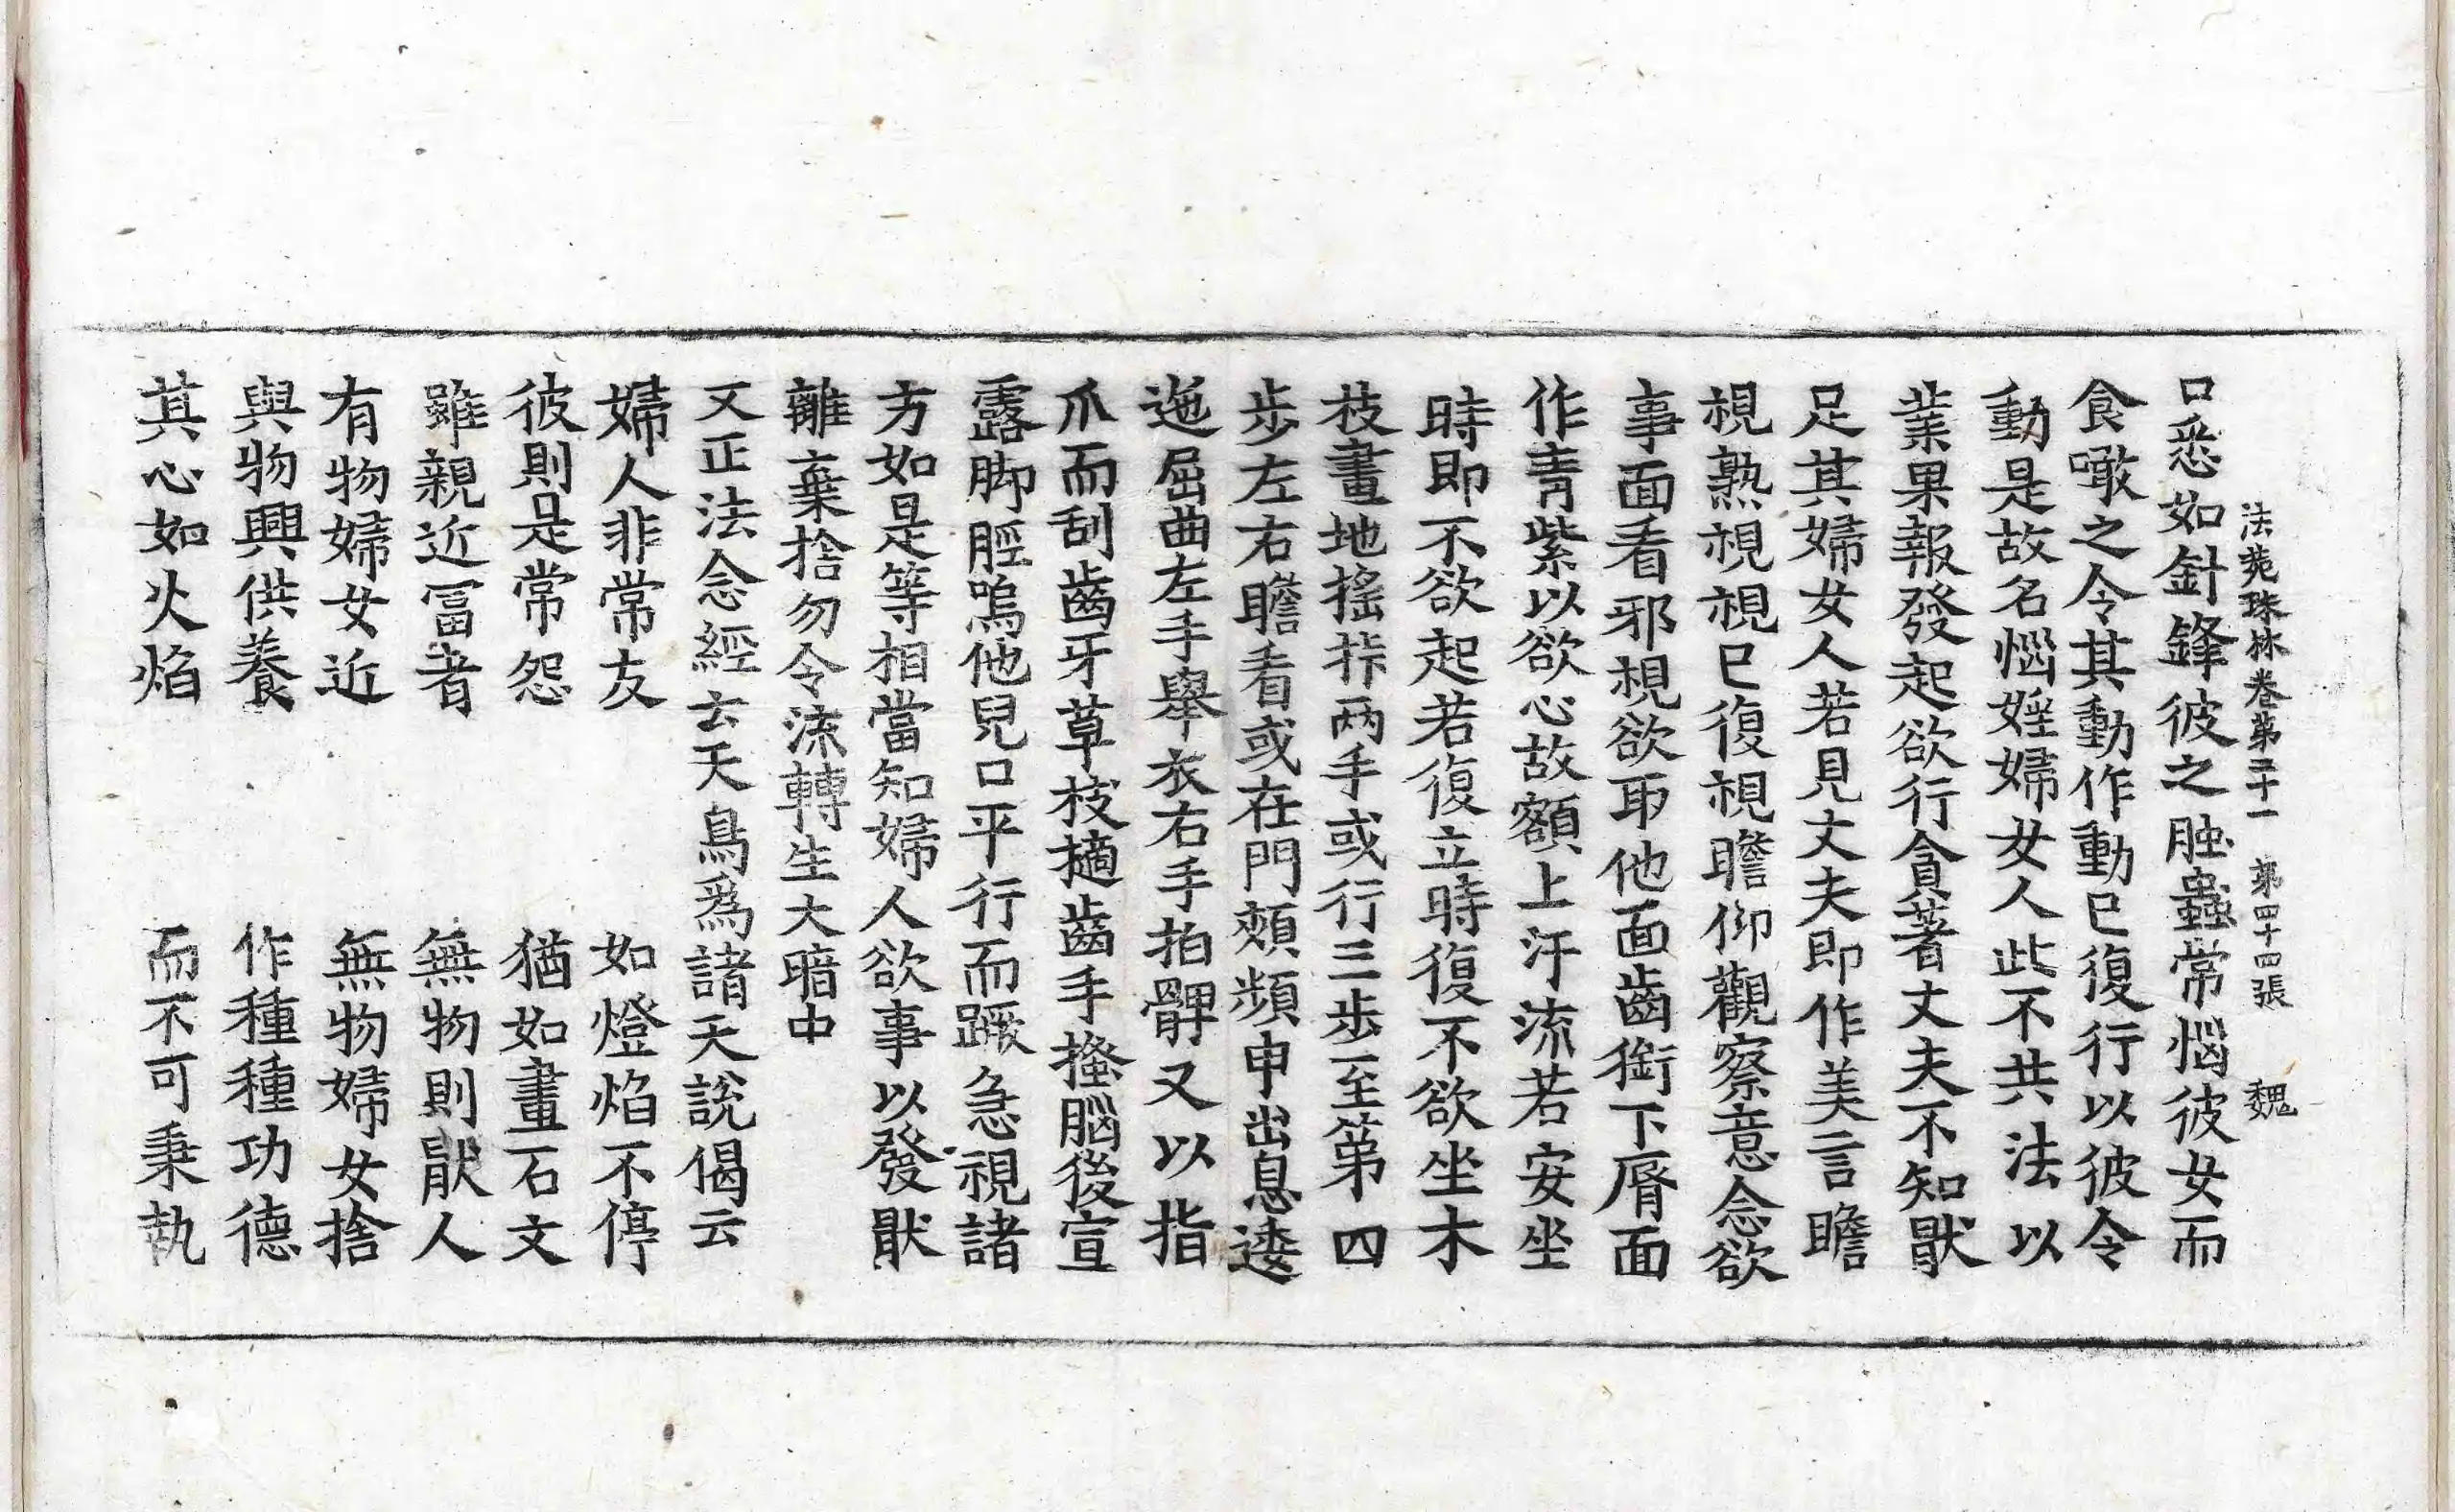 法苑珠林卷第二十一　第四十四張　魏
口悉如針鋒彼之䖝蟲常惱彼女而
食噉之令其動作動已復行以彼令
動是故名惱婬婦女人此不共法以
業果報發起欲行貪著丈夫不知猒
足其婦女人若見丈夫即作美言瞻
視熟視視已復視瞻仰觀察意念欲
事面看邪視欲取他面齒銜下脣面
作青紫以欲心故額上汗流若安坐
時即不欲起若復立時復不欲坐木
枝畫地搖挊兩手或行三步至第四
步左右瞻看或在門頰頻申出息逶
迤屈曲左手舉衣右手拍髀又以指
爪而刮齒牙草枝擿齒手搔腦後宣
露脚脛嗚他兒口平行而蹶急視諸
方如是等相當知婦人欲事以發猒
離棄捨勿令流轉生大暗中
又正法念經云天鳥爲諸天說偈云
婦人非常友　如燈焰不停
彼則是常怨　猶如畫石文
雖親近冨者　無物則猒人
有物婦女近　無物婦女捨
與物興供養　作種種功德
其心如火焰　而不可秉執